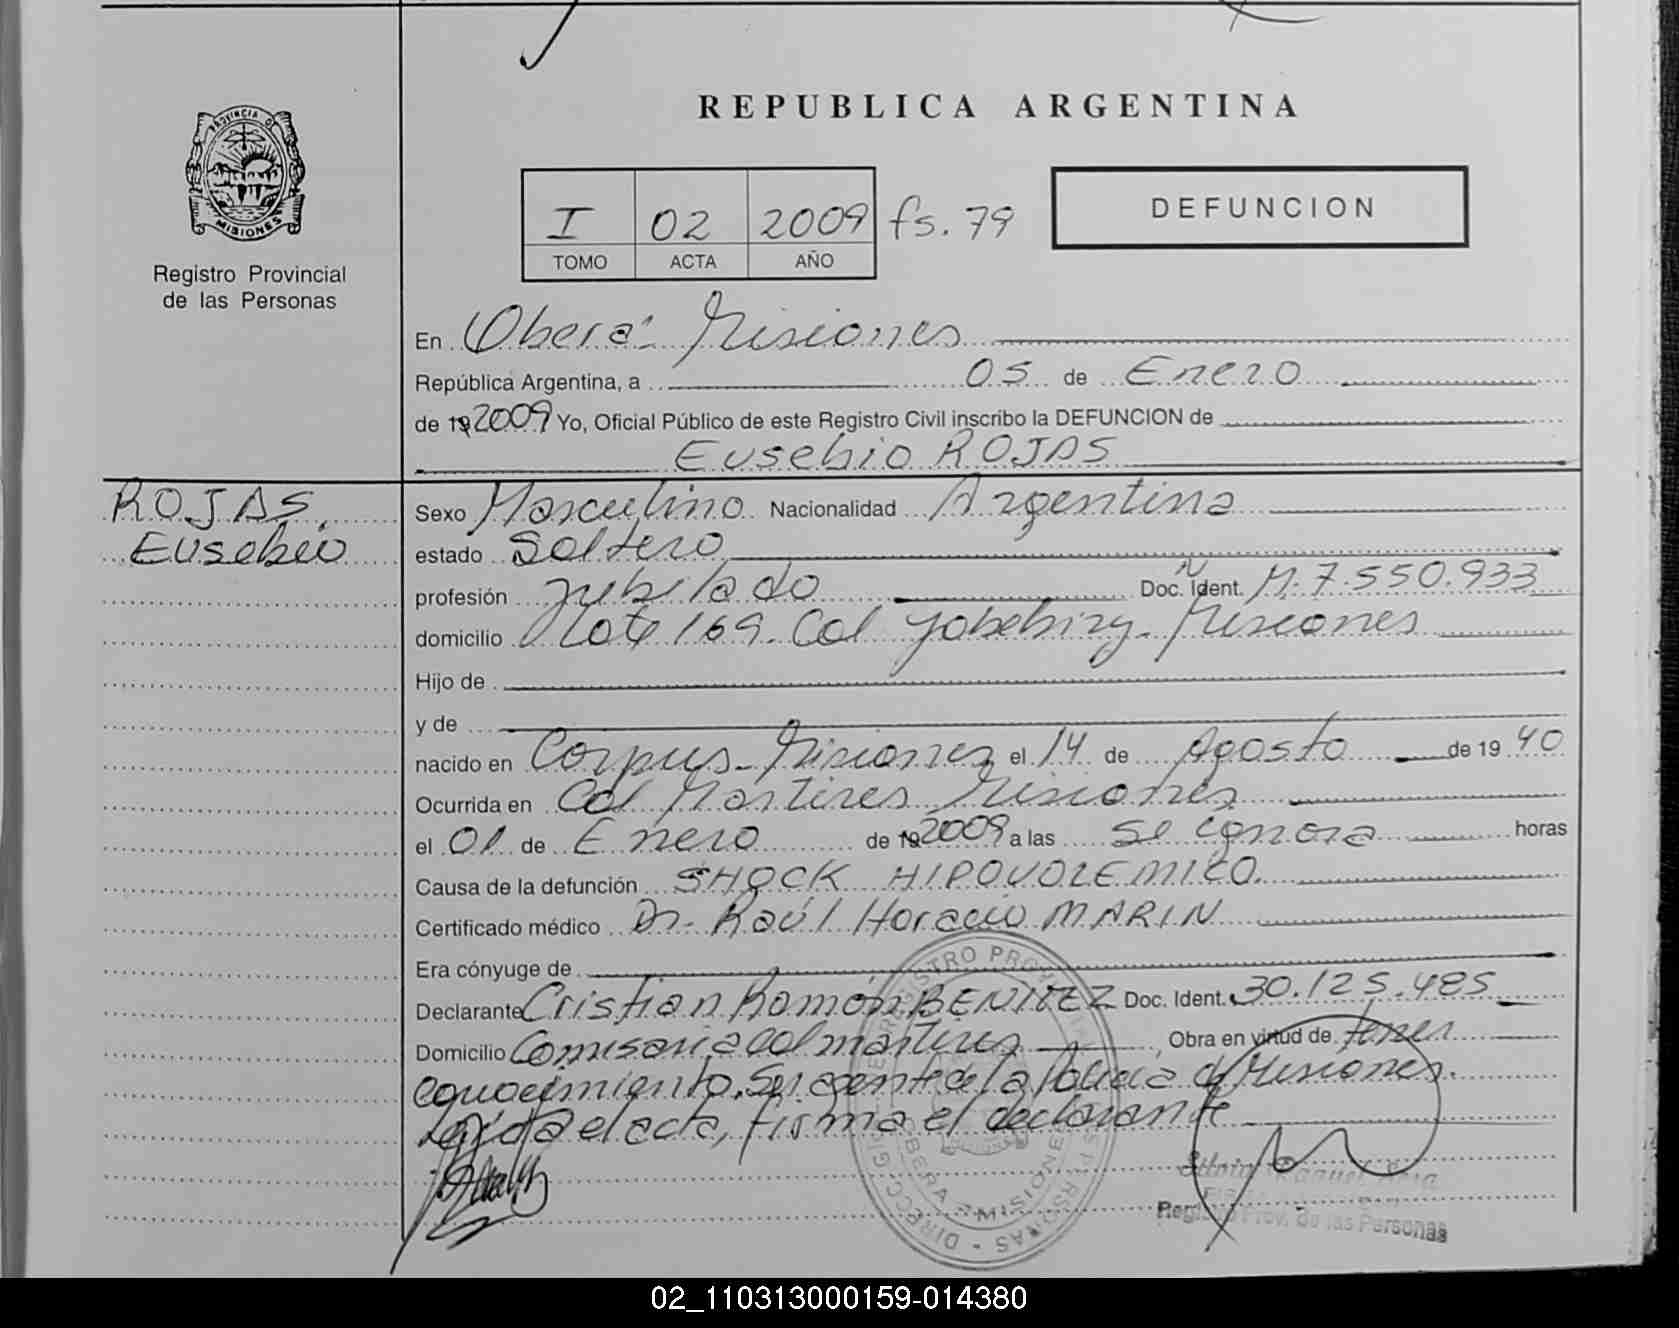 REPUBLICA ARGENTINA
PROVINCIA D
MISIONES
Registro Provincial
de las Personas
I 02 2009 fs. 79
TOMO ACTA AÑO
DEFUNCION
En Oberá - Misiones
República Argentina, a 05 de Enero
de 19 2009 Yo, Oficial Público de este Registro Civil inscribo la DEFUNCION de
Eusebio ROJAS
ROJAS,
Eusebio
Sexo Masculino Nacionalidad Argentina
estado Soltero
profesión jubilado Doc. Ident. M. 7.550.933
domicilio Lote 169. Col Yabebiry - Misiones
Hijo de
y de
nacido en Corpus - Misiones el 14 de Agosto de 19 40
Ocurrida en Col Martires Misiones
el 01 de Enero de 19 2009 a las se ignora horas
Causa de la defunción SHOCK HIPOVOLEMICO.
Certificado médico Dr. Raúl Horacio MARIN
Era cónyuge de
Declarante Cristian Ramón BENITEZ Doc. Ident. 30.125.485
Domicilio Comisaria Col martires, Obra en virtud de tener
conocimiento. Ser agente de la Policia d Misiones.
Leída el acta, firma el declarante
OBERA - MISIONES
Registro Prov. de las Personas
02_110313000159-014380